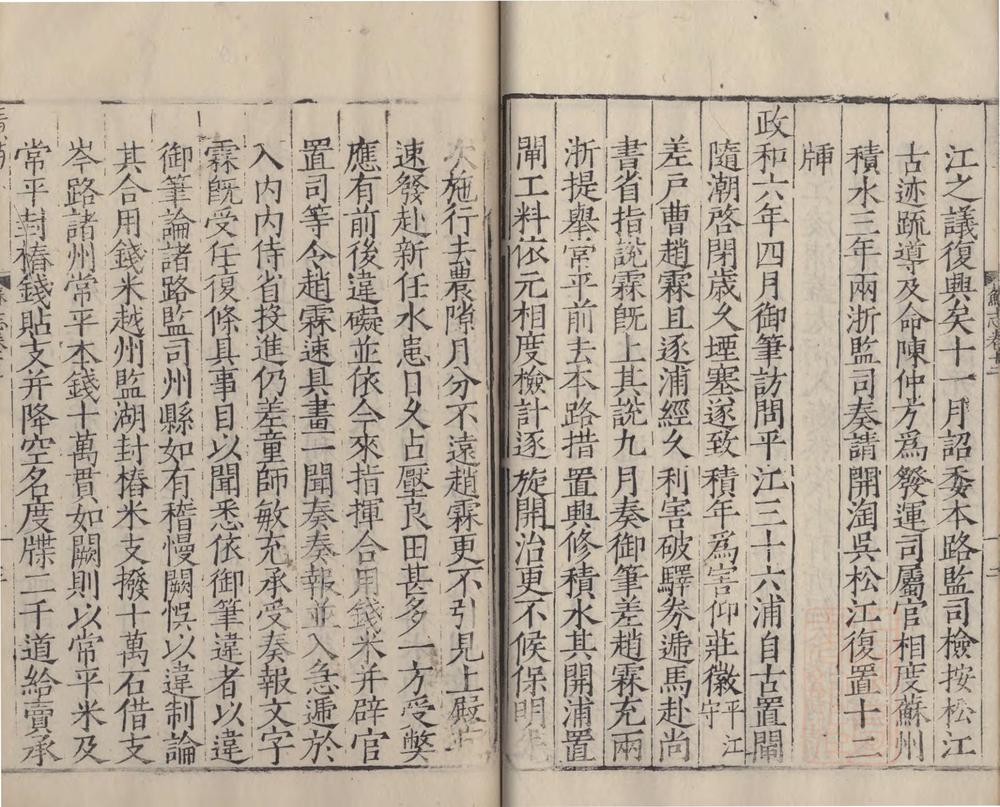 江之議復興矣十一月詔委本路監司檢按松江
古迹疏導及命陳仲方爲發運司屬官相度蘇州
積水三年兩浙監司奏請開淘吳松江復置十二
牐
政和六年四月御筆訪問平江三十六浦自古置閘
隨潮啓閉歲久堙塞遂致積年爲害仰莊徽平江守
差戶曹趙霖且逐浦經久利害破驛券遞馬赴尚
書省指說霖旣上其說九月奏御筆差趙霖充兩
浙提舉常平前去本路措置興修積水其開浦置
閘工料依元相度檢計逐旋開治更不候保明
次施行去農隙月分不遠趙霖更不引見上殿
速發赴新任水患日久占壓良田甚多一方受弊
應有前後違礙並依今來指揮合用錢米并辟官
置司等令趙霖速具畫一聞奏奏報並入急遞於
入內內侍省投進仍差童師敏充承受奏報文字
霖旣受任復條具事目以聞悉依御筆違者以違
御筆論諸路監司州縣如有稽慢闕悞以違制論
其合用錢米越州監湖封樁米支撥十萬石借支
本路諸州常平本錢十萬貫如闕則以常平米及
常平封樁錢貼支并降空名度牒二千道給賣承